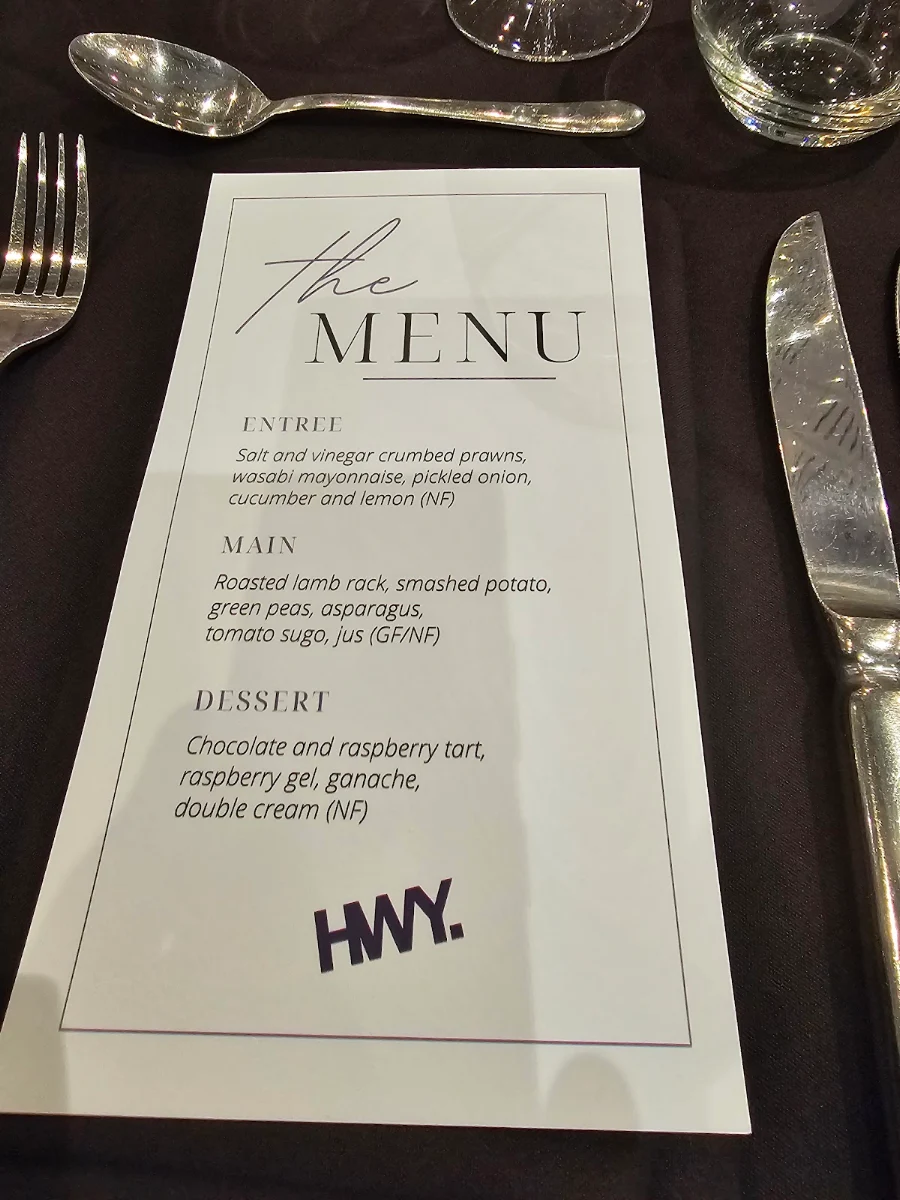 the
MENU
ENTREE
Salt and vinegar crumbed prawns,
wasabi mayonnaise, pickled onion,
cucumber and lemon (NF)
MAIN
Roasted lamb rack, smashed potato,
green peas, asparagus,
tomato sugo, jus (GF/NF)
DESSERT
Chocolate and raspberry tart,
raspberry gel, ganache,
double cream (NF)
HWY.